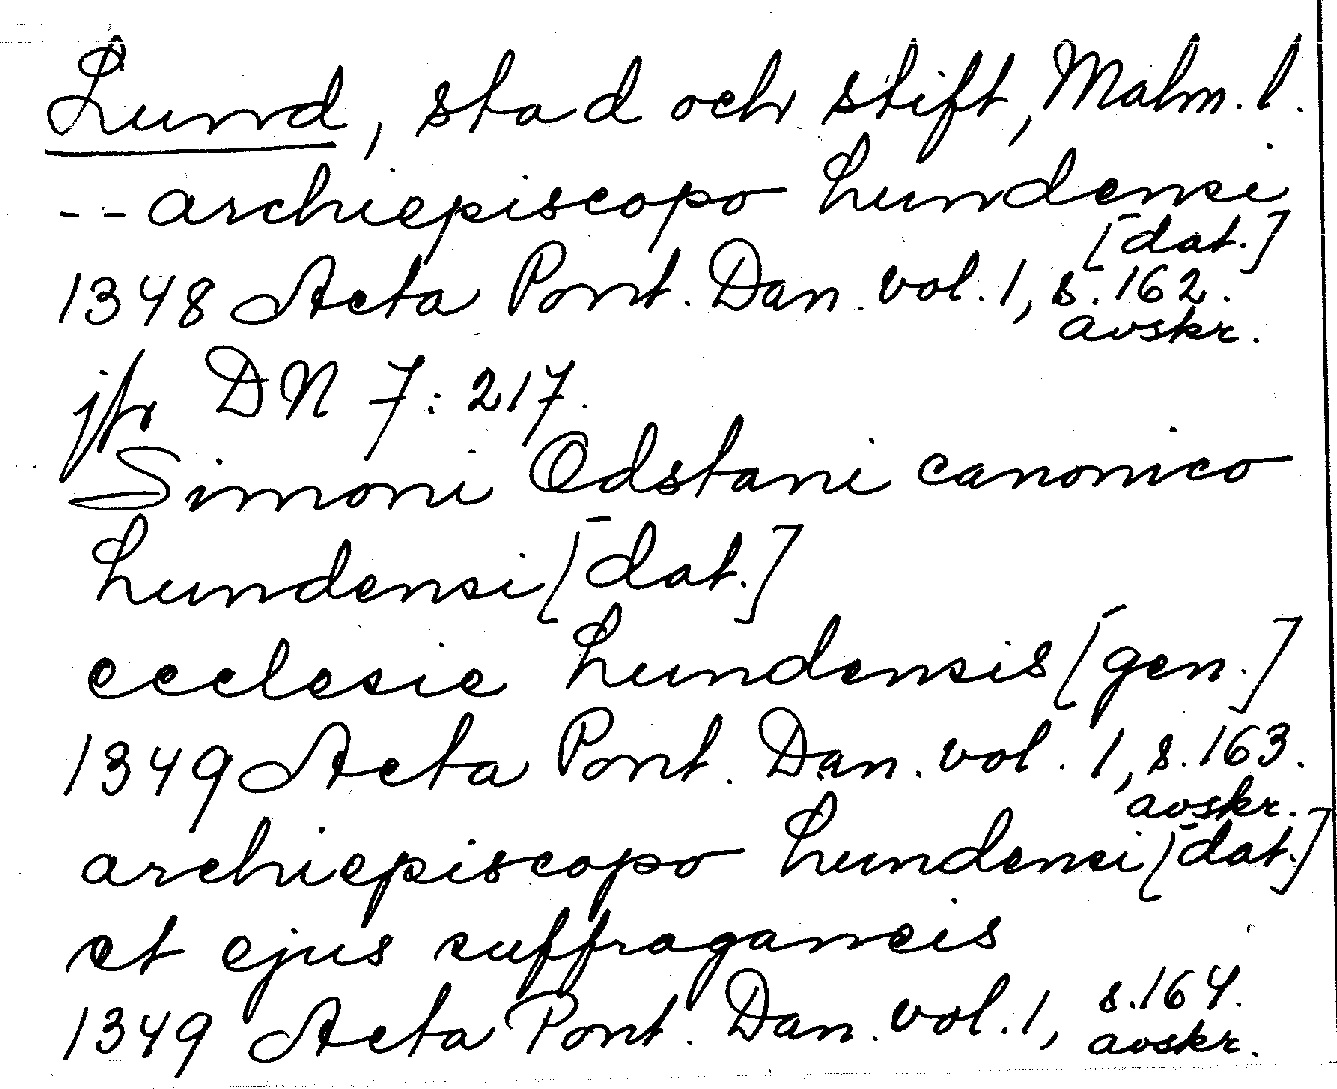 Lund, stad och stift, Malm. l.
-- archiepiscopo Lundensi
[dat.]
1348 Acta Pont. Dan. vol. 1, s. 162.
avskr.
jfr DN 7: 217.
Simoni Odstani canonico
Lundensi [dat.]
ecclesie Lundensis [gen.]
1349 Acta Pont. Dan. vol. 1, s. 163.
avskr.
archiepiscopo Lundensi [dat.]
et ejus suffraganeis
1349 Acta Pont. Dan. vol. 1, s. 164.
avskr.